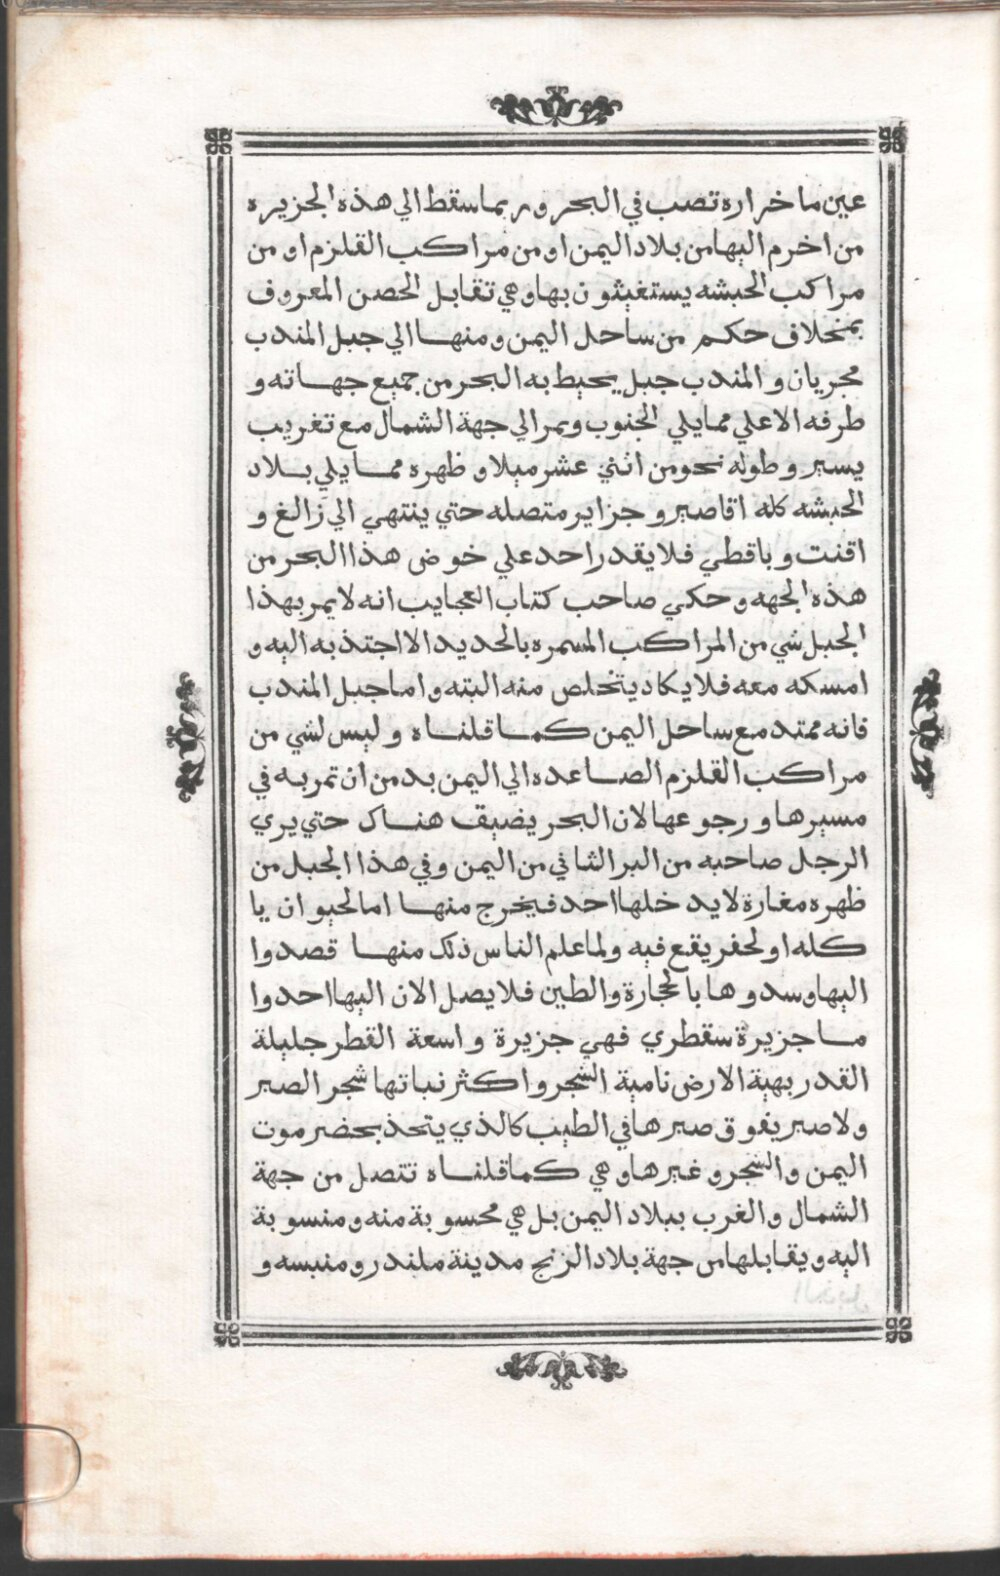 عين ما خراره تصب في البحر وربما سقط الي هذه الجزيره
من اخرم اليها من بلاد اليمن او من مراكب القلزم او من
مراكب الحبشه يستغيثون بها وهي تقابل الحصن المعروف
بمخلاف حكم من ساحل اليمن ومنها الي جبل المندب
مجريان والمندب جبل يحيط به البحر من جميع جهاته و
طرفه الاعلي مما يلي الجنوب ويمر الي جهة الشمال مع تغريب
يسير وطوله نحو من اثني عشر ميلا وظهره مما يلي بلاد
الحبشه كله اقاصير وجزاير متصله حتي ينتهي الي زالغ و
اقنت وباقطي فلا يقدر احد علي خوض هذا البحر من
هذه الجهه وحكي صاحب كتاب العجايب انه لا يمر بهذا
الجبل شي من المراكب المسمره بالحديد الا اجتذبه اليه و
امسكه معه فلا يكاد يتخلص منه البته واما جبل المندب
فانه ممتد مع ساحل اليمن كما قلناه وليس لشي من
مراكب القلزم الصاعده الي اليمن بد من ان تمر به في
مسيرها ورجوعها لان البحر يضيق هناك حتي يري
الرجل صاحبه من البر الثاني من اليمن وفي هذا الجبل من
ظهره مغارة لا يدخلها احد فيخرج منها اما لحيوان يا
كله او لحفر يقع فيه ولما علم الناس ذلك منها قصدوا
اليها وسدوها بالحجارة والطين فلا يصل الان اليها احد وا
ما جزيرة سقطري فهي جزيرة واسعة القطر جليلة
القدر بهية الارض نامية الشجر واكثر نباتها شجر الصبر
ولا صبر يفوق صبرها في الطيب كالذي يتخذ بحضرموت
اليمن والشجر وغيرها وهي كما قلناه تتصل من جهة
الشمال والغرب ببلاد اليمن بل هي محسوبة منه ومنسوبة
اليه ويقابلها من جهة بلاد الزنج مدينة ملندر ومنبسه و